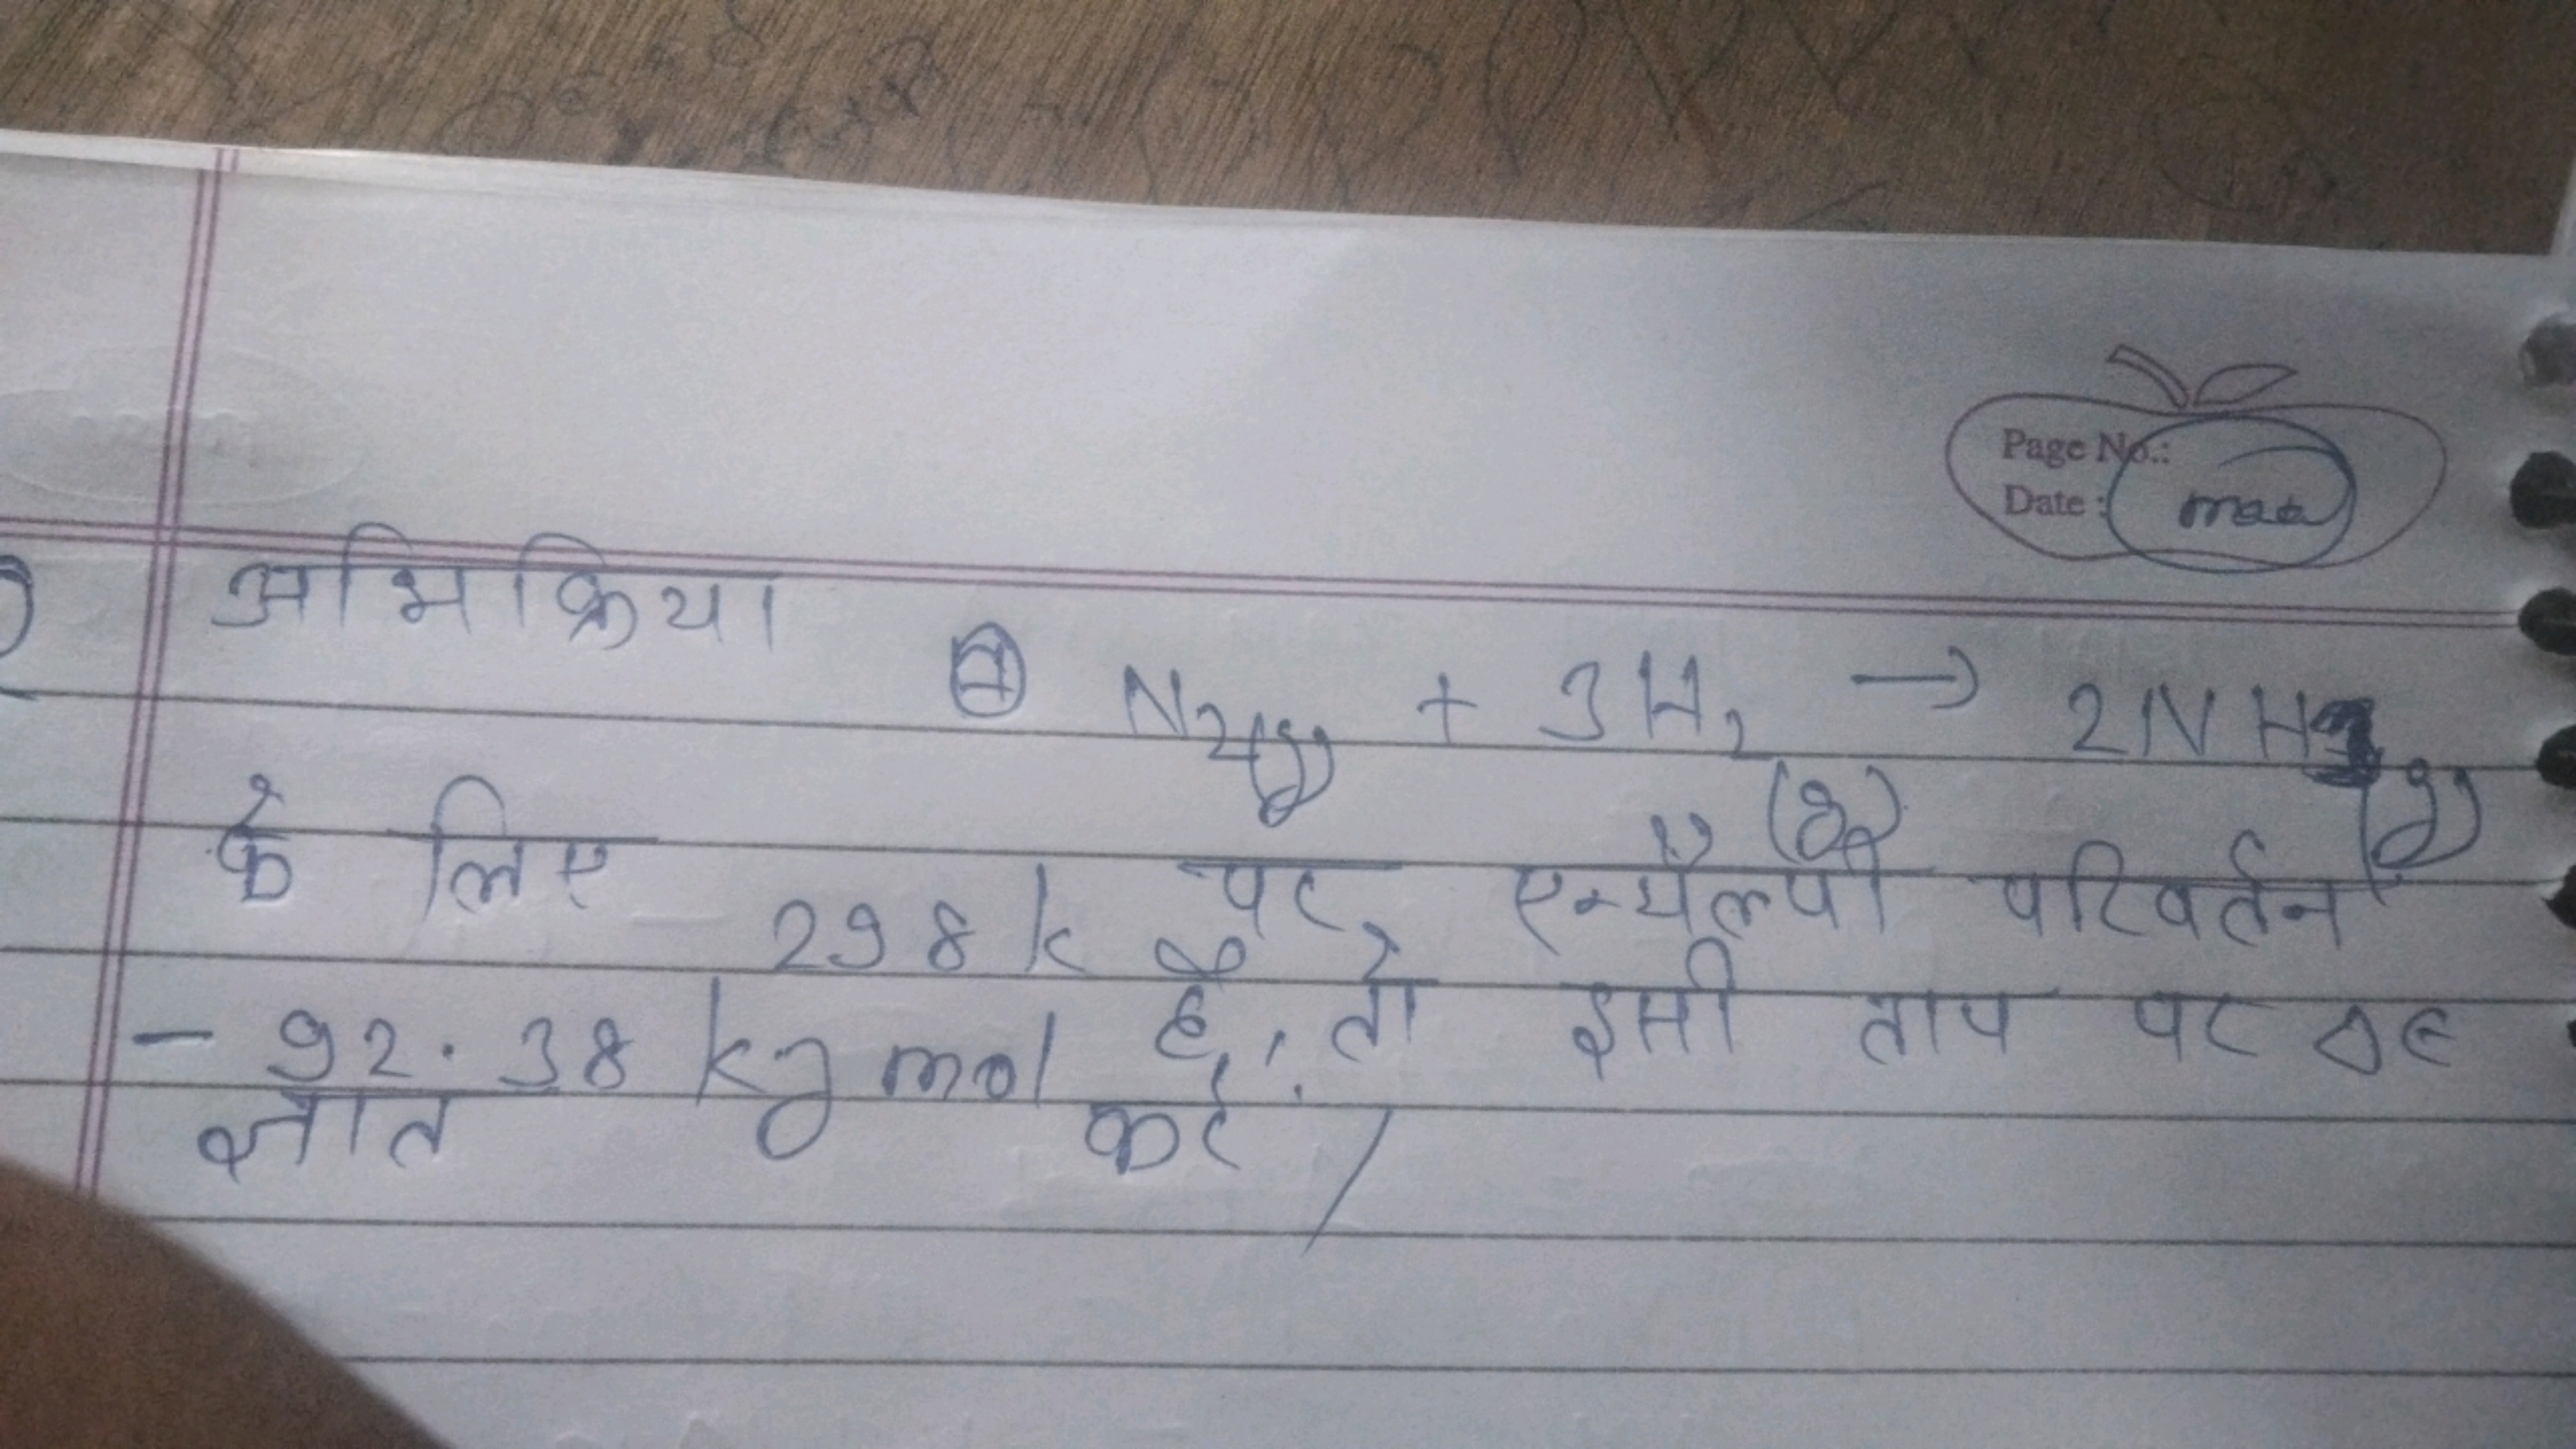 Page No.:
Date : maa
अभिक्रिया N2(g) + 3H2(g) → 2NH3(g)
के लिए 298k पर, एन्थैल्पी परिवर्तन
- 92.38 kJ mol है, तो इसी ताप पर ΔE
ज्ञात करें /